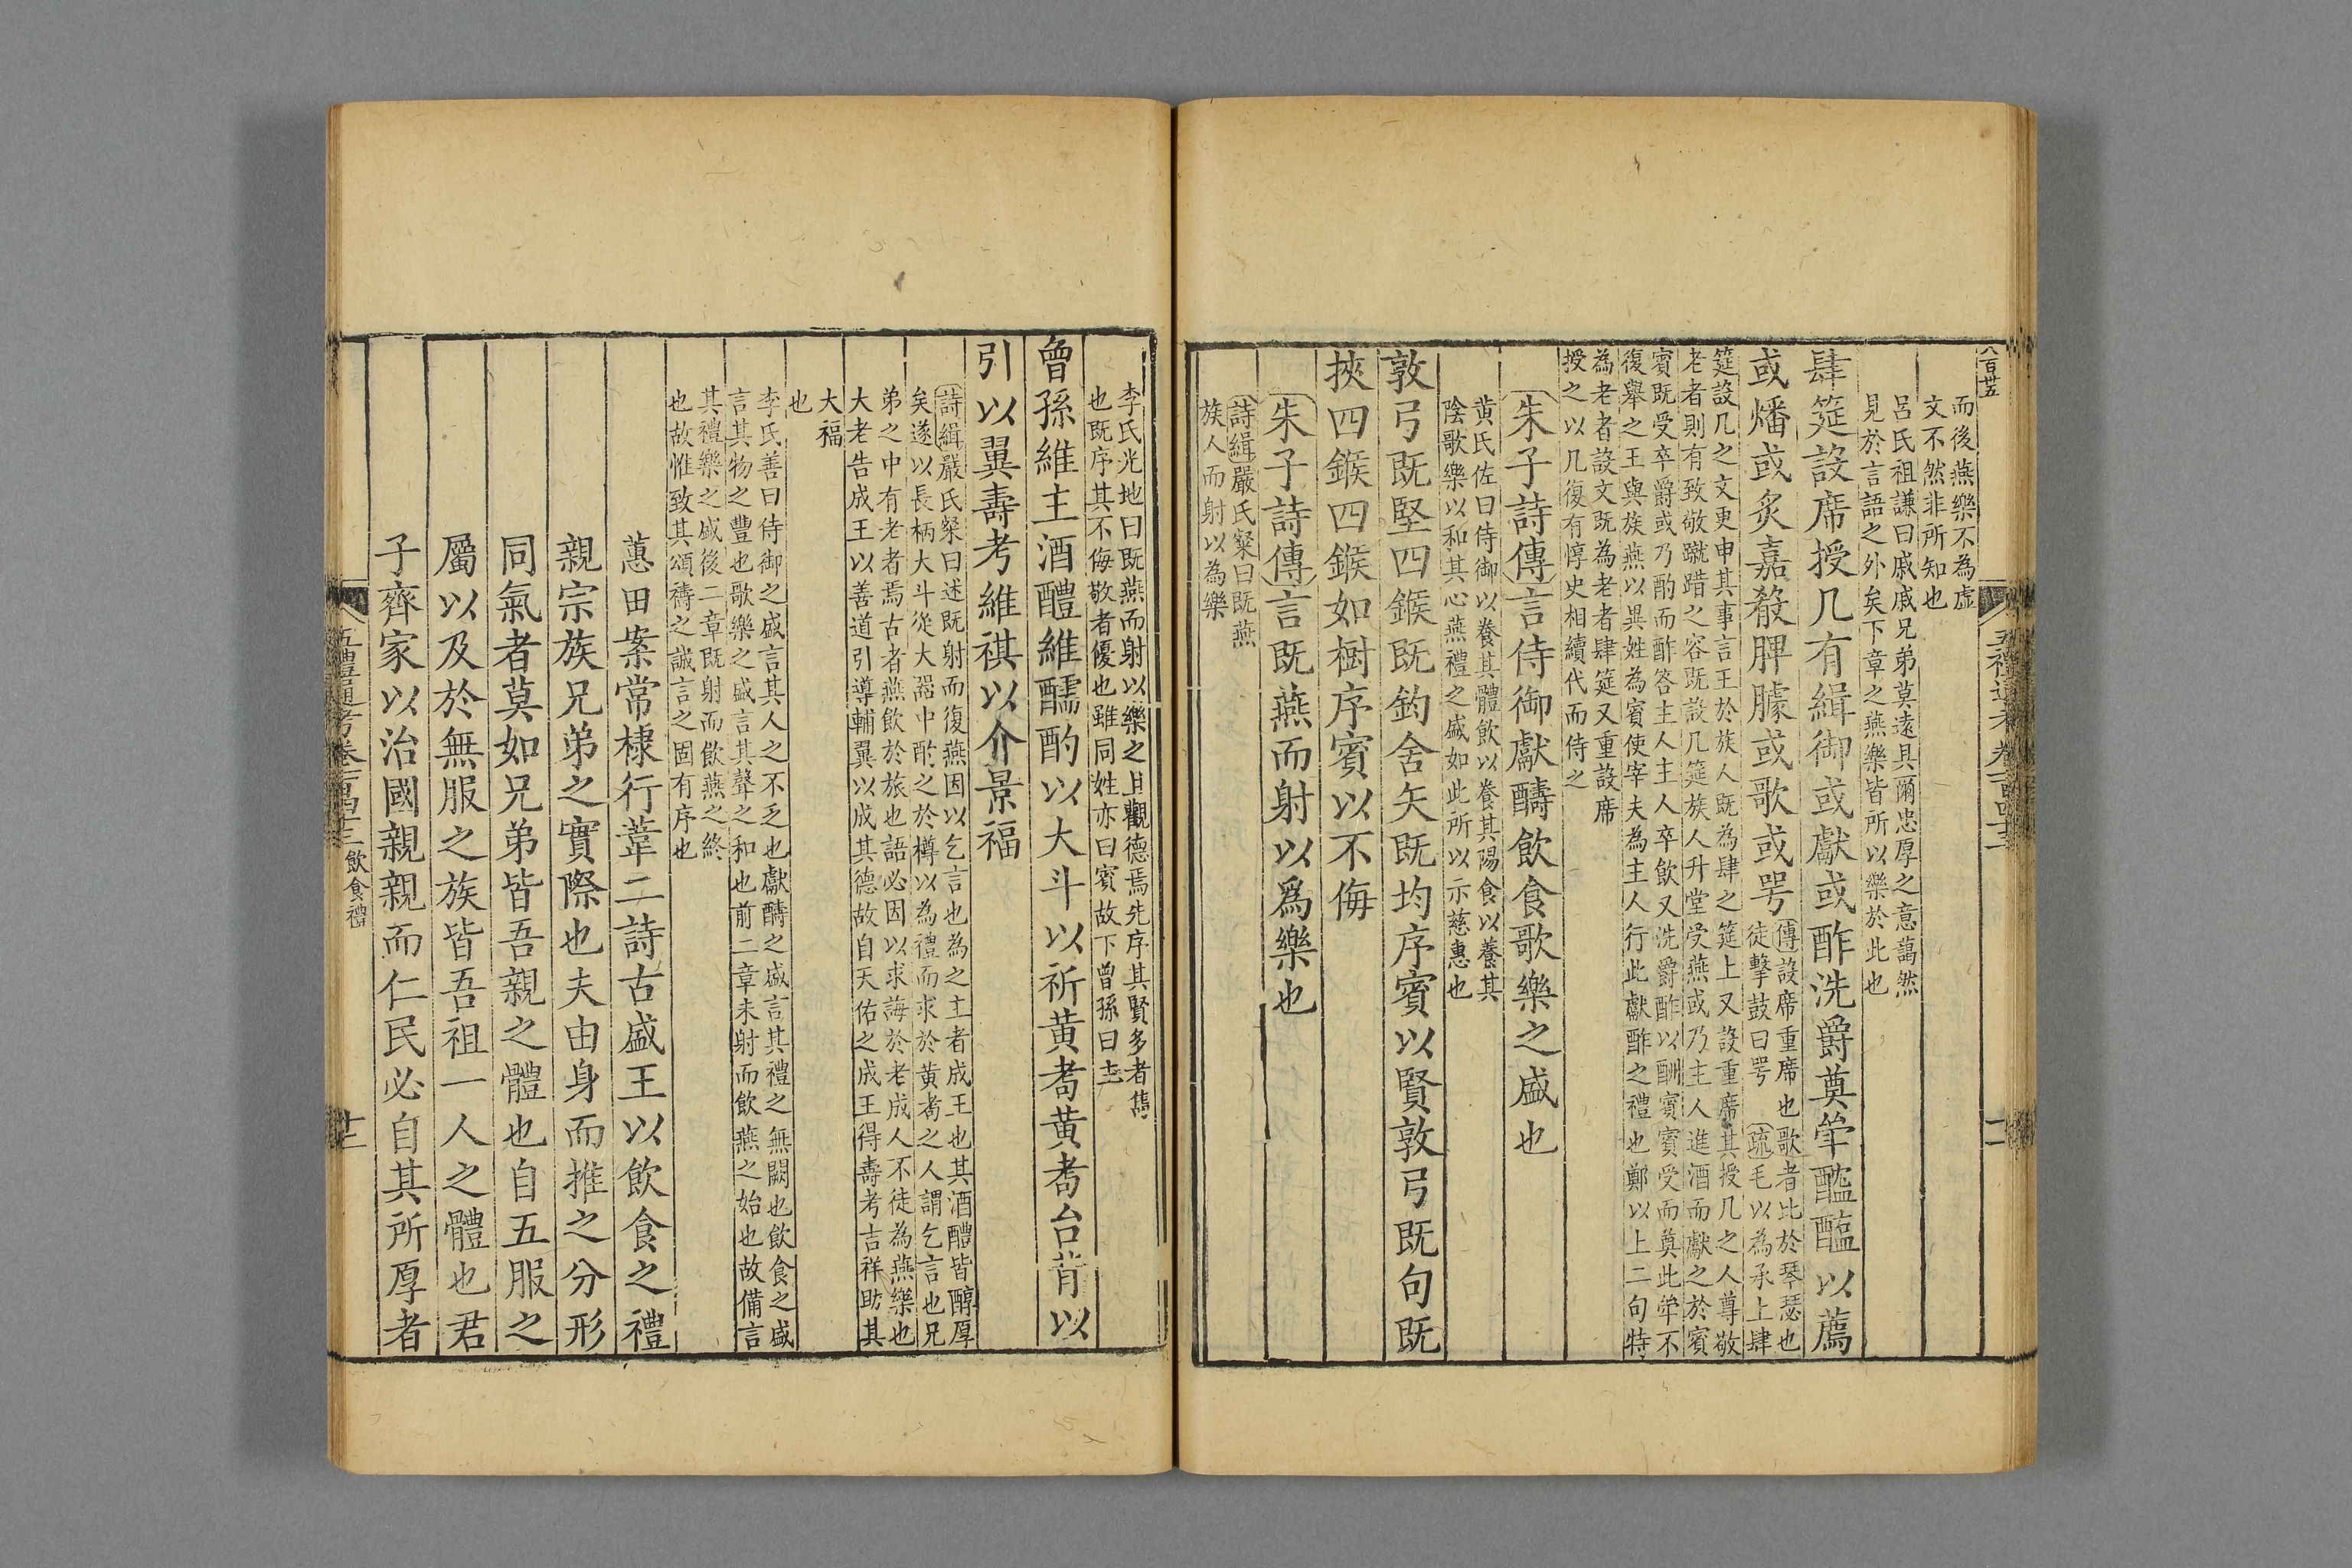 八百卅五
而後燕樂不為虛
文不然非所知也
呂氏祖謙曰戚戚兄弟莫遠具爾忠厚之意藹然
見於言語之外矣下章之燕樂皆所以樂於此也
肆筵設席授几有緝御或獻或酢洗爵奠斝醓醢以薦
或燔或炙嘉殽脾臄或歌或咢
傳設席重席也歌者比於琴瑟也
徒擊鼓曰咢 疏毛以為承上肆
筵設几之文更申其事言王於族人既為肆之筵上又設重席其授几之人尊敬
老者則有致敬踧踖之容既設几筵族人升堂受燕或乃主人進酒而獻之於賓
賓既受卒爵或乃酌而酢答主人主人卒飲又洗爵酢以酬賓賓受而奠此斝不
復舉之王與族燕以異姓為賓使宰夫為主人行此獻酢之禮也鄭以上二句特
為老者設文既為老者肆筵又重設席
授之以几復有惇史相續代而侍之
朱子詩傳言侍御獻醻飲食歌樂之盛也
黃氏佐曰侍御以養其體飲以養其陽食以養其
陰歌樂以和其心燕禮之盛如此所以示慈惠也
敦弓既堅四鍭既鈞舍矢既均序賓以賢敦弓既句既
挾四鍭四鍭如樹序賓以不侮
朱子詩傳言既燕而射以爲樂也
詩緝嚴氏粲曰既燕
族人而射以為樂
五禮通考卷一百四十三
十一
李氏光地曰既燕而射以樂之且觀德焉先序其賢多者雋
也既序其不侮敬者優也雖同姓亦曰賓故下曾孫曰主
曾孫維主酒醴維醹酌以大斗以祈黄耇黄耇台背以
引以翼壽考維祺以介景福
詩緝嚴氏粲曰述既射而復燕因以乞言也為之主者成王也其酒醴皆醇厚
矣遂以長柄大斗從大器中酌之於樽以為禮而求於黄耇之人謂乞言也兄
弟之中有老者焉古者燕飲於旅也語必因以求誨於老成人不徒為燕樂也
大老告成王以善道引導輔翼以成其德故自天佑之成王得壽考吉祥助其
大福
也
李氏善曰侍御之盛言其人之不乏也獻醻之盛言其禮之無闕也飲食之盛
言其物之豐也歌樂之盛言其聲之和也前二章未射而飲燕之始也故備言
其禮樂之盛後二章既射而飲燕之終
也故惟致其頌禱之誠言之固有序也
蕙田案常棣行葦二詩古盛王以飲食之禮
親宗族兄弟之實際也夫由身而推之分形
同氣者莫如兄弟皆吾親之體也自五服之
屬以及於無服之族皆吾祖一人之體也君
子齊家以治國親親而仁民必自其所厚者
五禮通考卷一百四十三 飲食禮